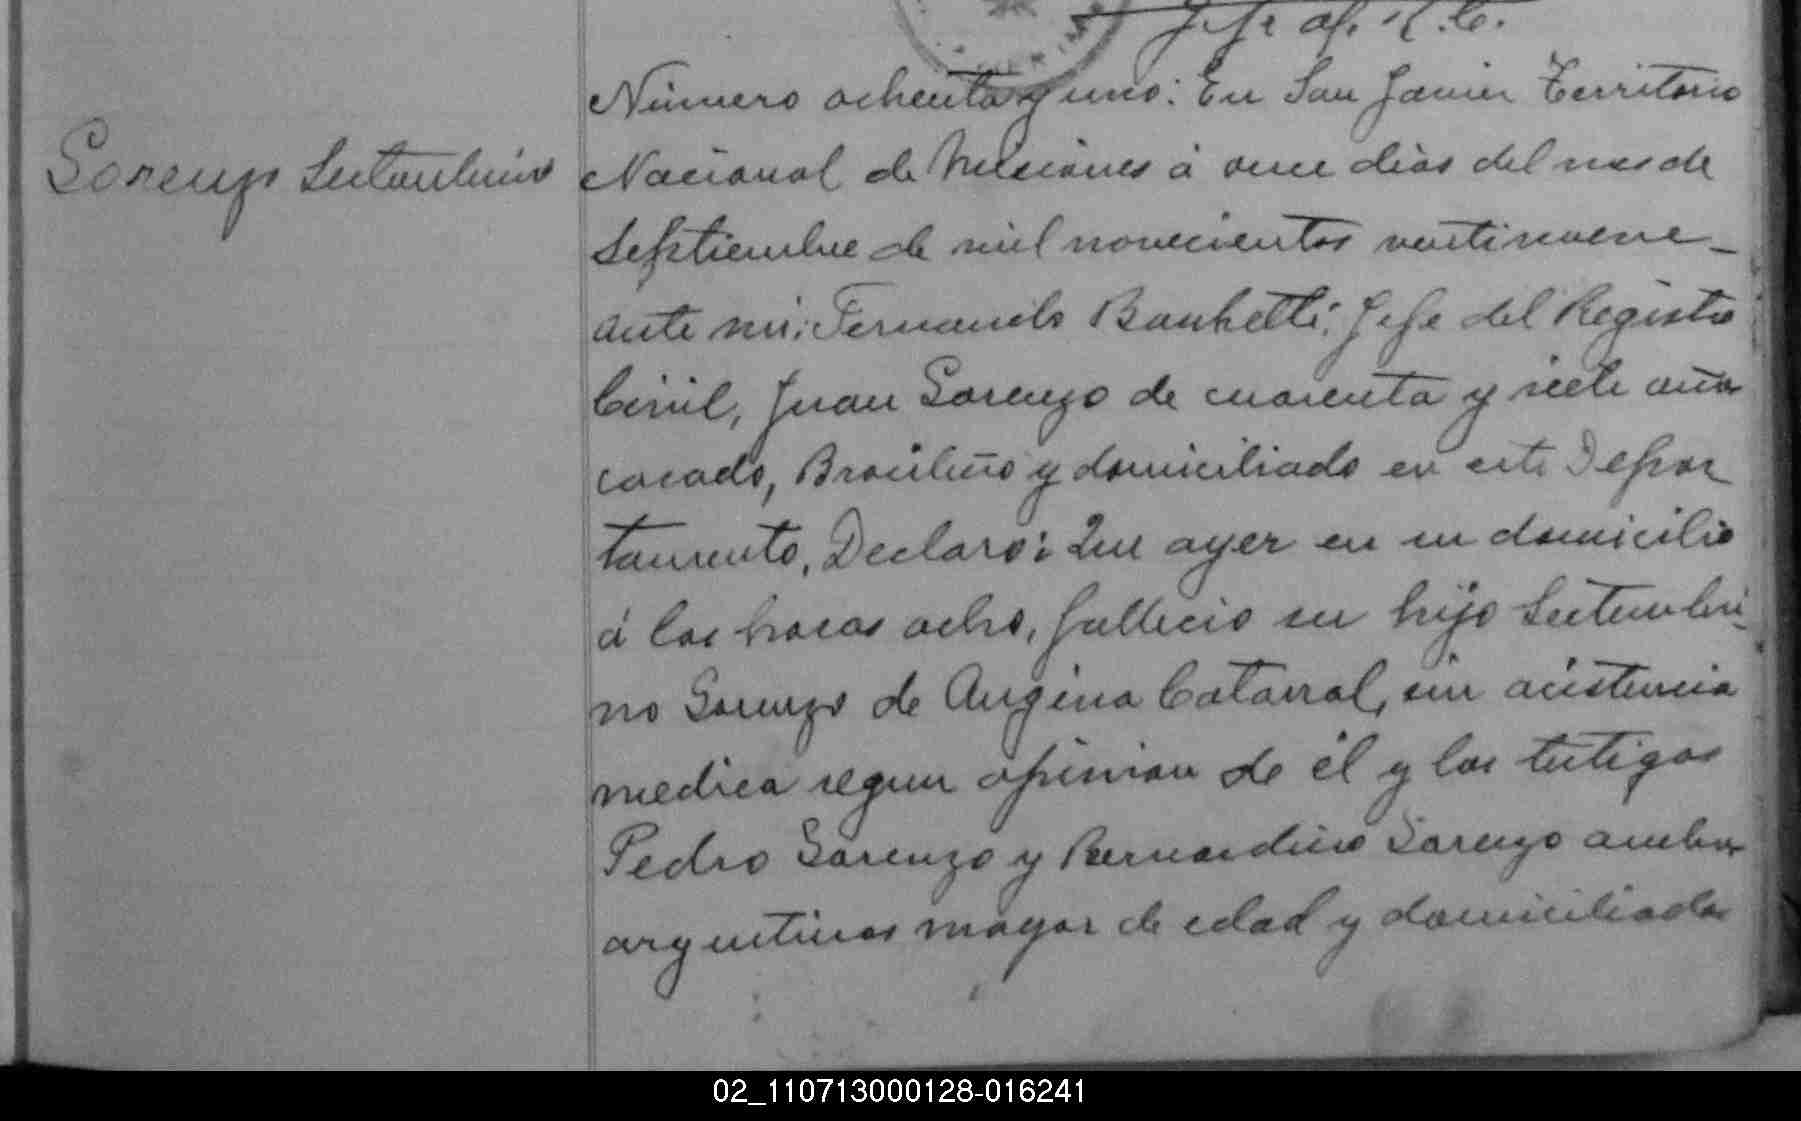 Jefe of. R. C.
Lorenzo Setembrino
Número ochenta y uno: En San Javier Territorio
Nacional de Misiones á once dias del mes de
Septiembre de mil novecientos veintinueve_
ante mi: Fernando Banhetti: Jefe del Registro
Civil, Juan Lorenzo de cuarenta y siete años
casado, Brasileño y domiciliado en este Depar
tamento, Declaro: Que ayer en su domicilio
á las horas ocho, fallecio su hijo Setembri_
no Lorenzo de Angina Catarral, sin asistencia
medica segun opinion de él y los testigos
Pedro Lorenzo y Bernardino Lorenzo ambos
argentinos mayor de edad y domiciliados
02_110713000128-016241